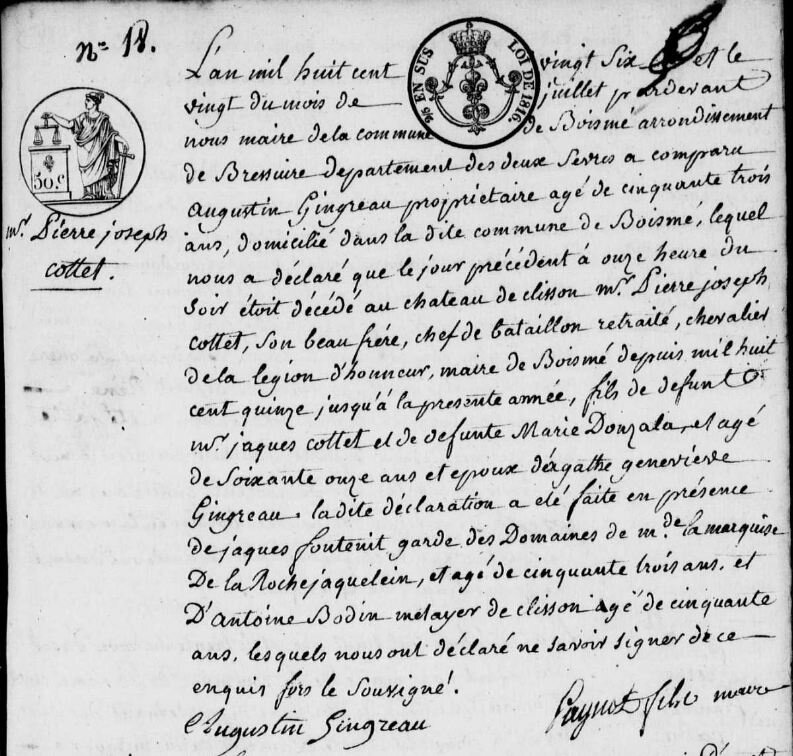 n= 18.
L'an mil huit cent vingt six et le
vingt du mois de juillet pardevant
nous maire de la commune de Boismé arrondissement
de Bressuire departement des deux Sevres a comparu
Augustin Gingreau propriétaire agé de cinquante trois
ans, domicilié dans la dite commune de Boismé, lequel
nous a déclaré que le jour précédent à onze heure du
soir étoit décédé au chateau de clisson mr. Pierre joseph
cottet, son beau frére, chef de bataillon retraité, chevalier
de la legion d'honneur, maire de Boismé depuis mil huit
cent quinze jusqu'à la presente année, fils de defunt
mr. jaques cottet et de defunte Marie Donzala, et agé
de soixante onze ans et epoux d'agathe genevieve
Gingreau. la dite déclaration a eté faite en présence
de jaques fontenit garde des Domaines de mde. la marquise
De la Rochejaquelein, et agé de cinquante trois ans, et
D'Antoine Bodin métayer de clisson agé de cinquante
ans, lesquels nous ont déclaré ne savoir signer de ce
enquis fors le souvigné.
Augustin Gingreau
fils maire
mr. Pierre joseph
cottet.
50 c
EN SUS
LOI DE 1816